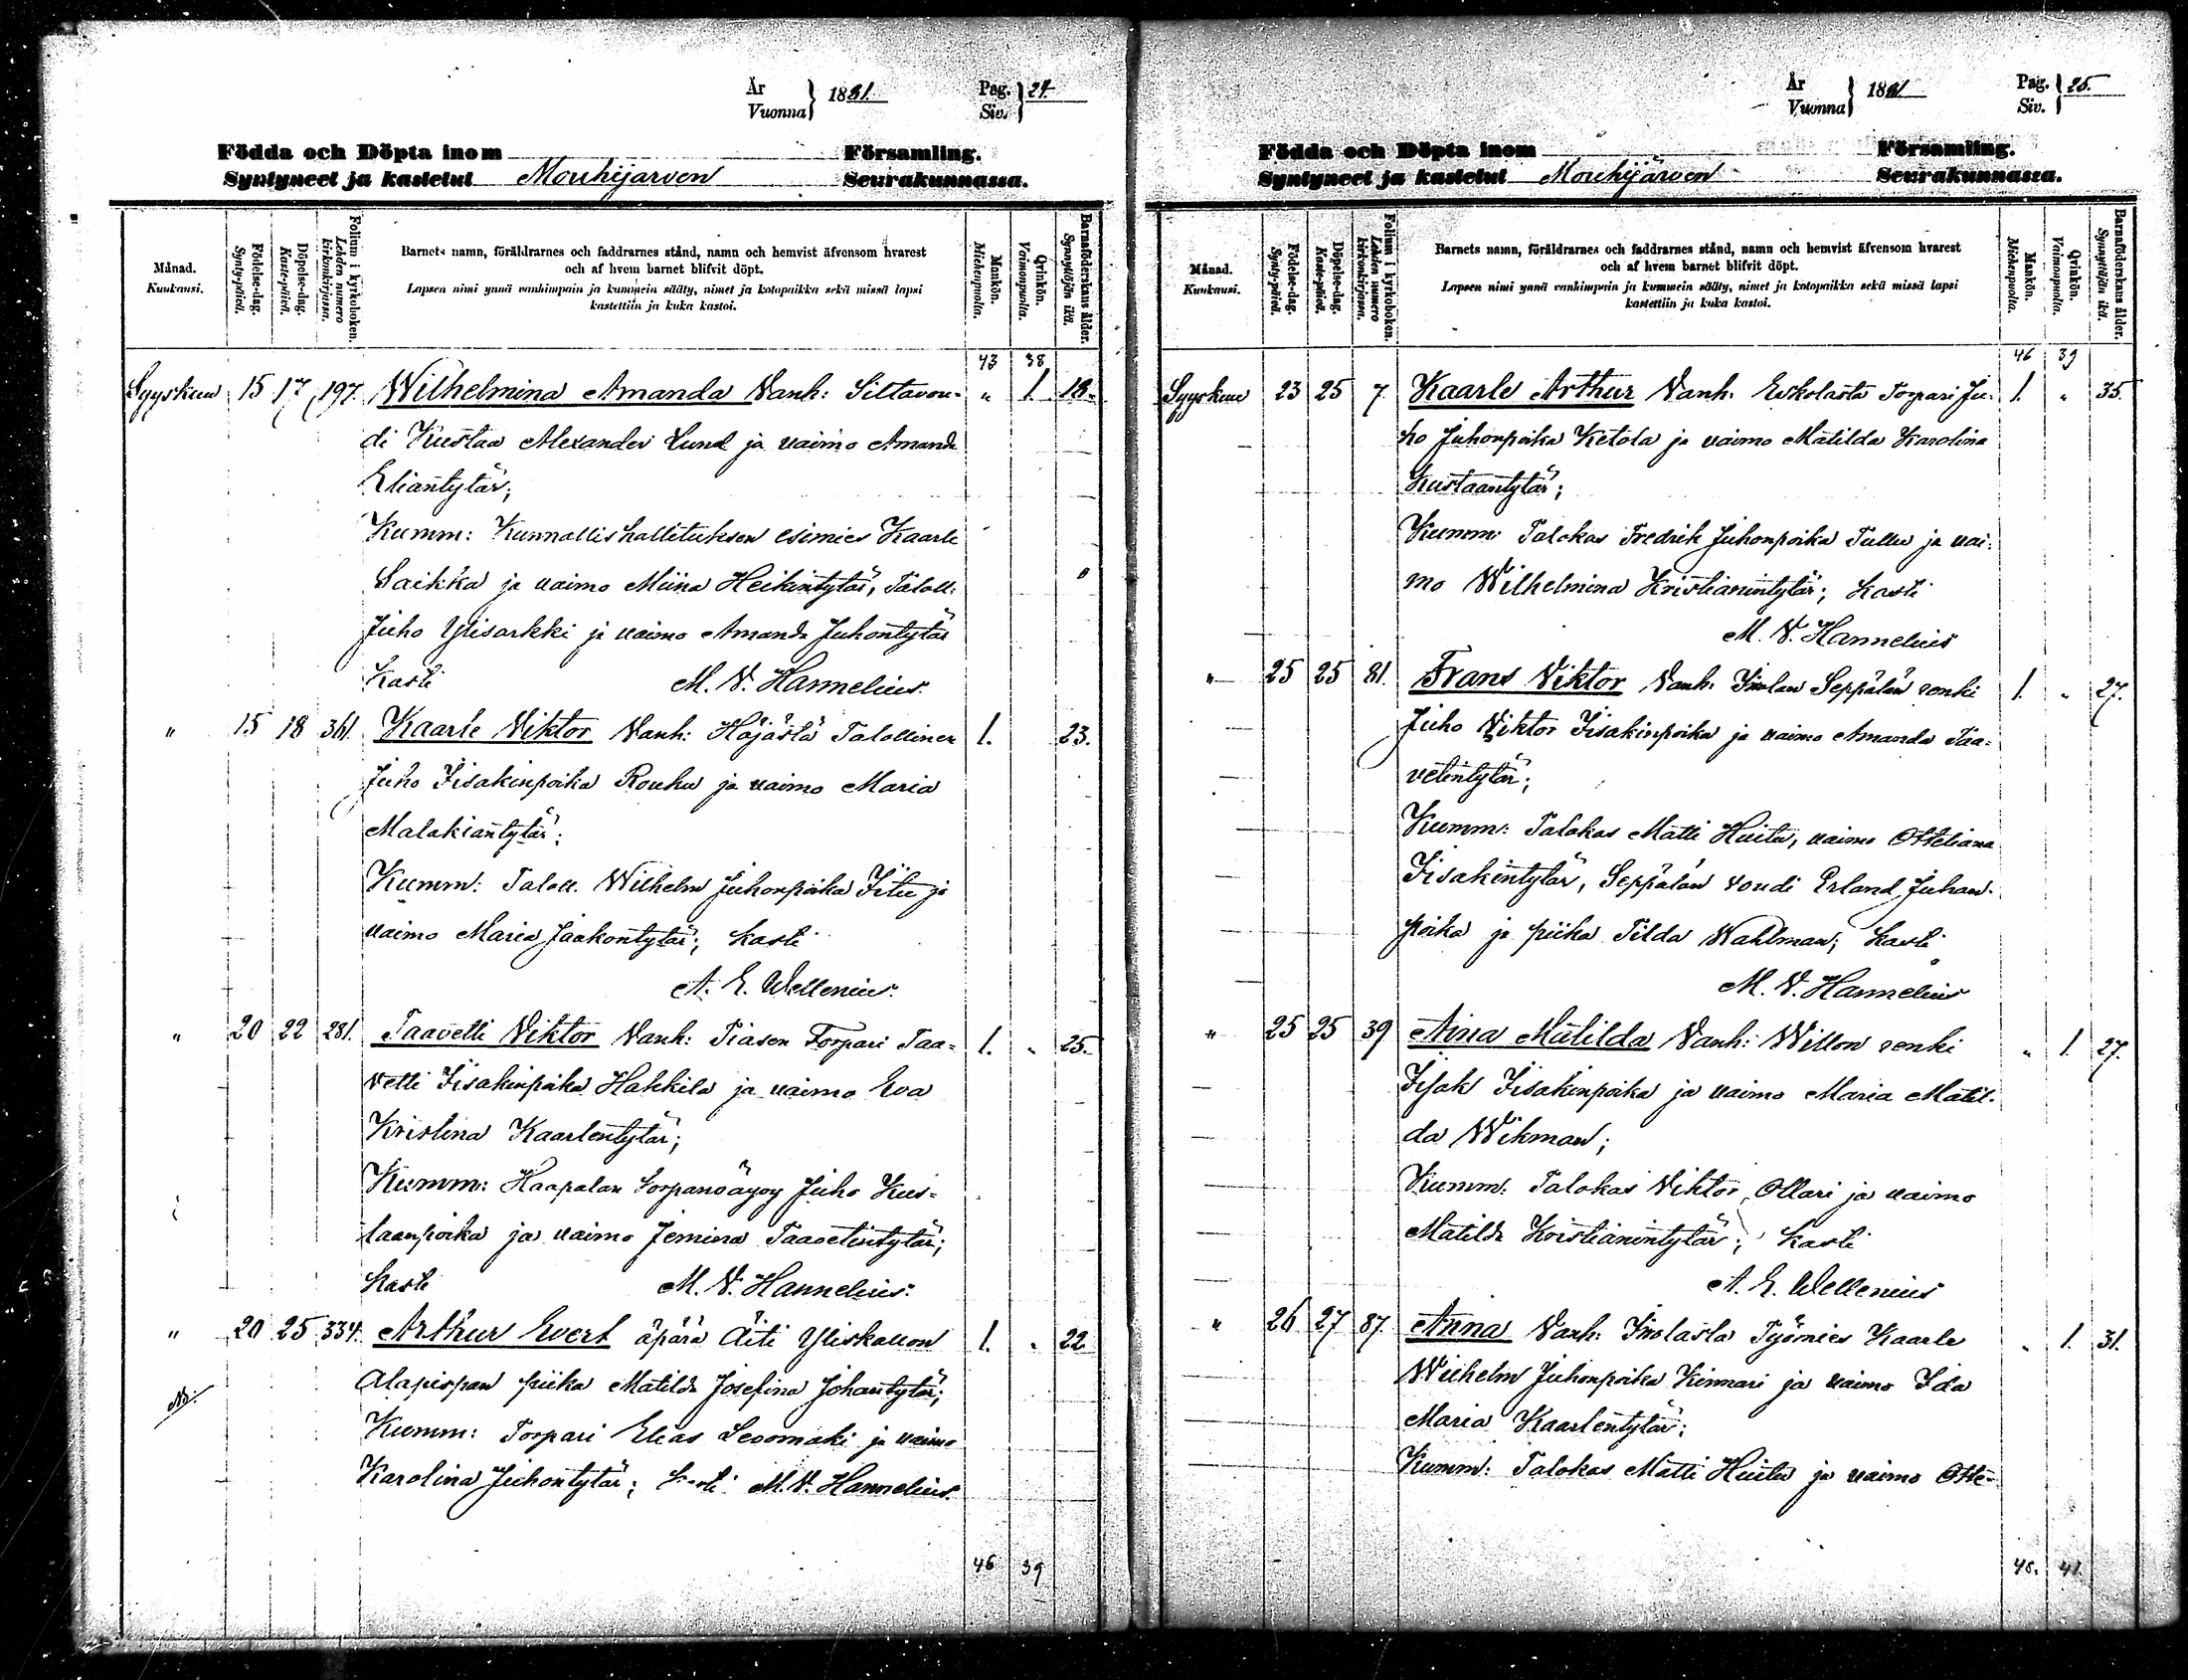 År
Vuonna } 1881.
Pag.
Siv. } 24.
Födda och Döpta inom Församling.
Syntyneet ja kastetut Mouhijärven Seurakunnassa.
Månad.
Kuukausi.
Födelse-dag.
Syntypäivä.
Döpelse-dag.
Kaste-päivä.
Folium i kyrkoboken.
Lehden numero kirkonkirjassa.
Barnets namn, föräldrarnes och faddrarnes stånd, namn och hemvist äfvensom hvarest
och af hvem barnet blifvit döpt.
Lapsen nimi ynnä vanhimpain ja kummein sääty, nimet ja kotopaikka sekä missä lapsi
kastettiin ja kuka kastoi.
Mankön.
Miehenpuolia.
Qvinkön.
Vaimonpuolia.
Barnaföderskans ålder.
Synnyttäjän ikä.
43 38
Syyskuu 15 17 197 Wilhelmina Amanda Vanh: Siltavou- " 1. 18.
di Kustaa Alexander Lund ja vaimo Amanda
Eliantytär;
Kumm: Kunnallishallituksen esimies Kaarle
Saikka ja vaimo Miina Heikintytär, Taloll:
Juho Ylisarkki ja vaimo Amanda Juhontytär
Kasti M. V. Hannelius.
" 15 18 361. Kaarle Viktor Vanh: Häjästä Talollinen 1. 23.
Juho Iisakinpoika Rouhu ja vaimo Maria
Malakiantytär;
Kumm: Taloll. Wilhelm Juhonpoika Iitu ja
vaimo Maria Jaakontytär; kasti
A. E. Wellenius.
" 20 22 281. Taavetti Viktor Vanh: Tiasen Torpari Taa- 1. " 25.
vetti Iisakinpoika Hakkila ja vaimo Eva
Kristina Kaarlentytär;
Kumm: Haapalan torpanvävy Juho Kus-
taanpoika ja vaimo Jemina Taavetintytär;
kasti M. V. Hannelius.
" 20 25 334. Arthur Evert äpärä Äiti Yliskallon 1. " 22
Alapispan piika Matilda Josefina Johantytär;
Kumm: Torpari Elias Leoomaki ja vaimo
Karolina Juhontytär; kasti M. V. Hannelius.
46 39
År
Vuonna } 1881
Pag.
Siv. } 25.
Födda och Döpta inom Församling.
Syntyneet ja kastetut Mouhijärven Seurakunnassa.
Månad.
Kuukausi.
Födelse-dag.
Synty-päivä.
Döpelse-dag.
Kaste-päivä.
Folium i kyrkoboken.
Lehden numero kirkonkirjassa.
Barnets namn, föräldrarnes och faddrarnes stånd, namn och hemvist äfvensom hvarest
och af hvem barnet blifvit döpt.
Lapsen nimi ynnä vanhimpain ja kummein sääty, nimet ja kotopaikka sekä missä lapsi
kastettiin ja kuka kastoi.
Mankön.
Miehenpuolia.
Qvinkön.
Vaimonpuolia.
Barnaföderskans ålder.
Synnyttäjän ikä.
46 39
Syyskuu 23 25 7 Kaarle Arthur Vanh: Eskolasta Torpari Ju- 1. " 35.
ho Juhonpoika Ketola ja vaimo Matilda Karolina
Kustaantytär;
Kumm: Talokas Fredrik Juhonpoika Tullu ja vai-
mo Wilhelmina Kristianintytär; kasti
M. V. Hannelius
" 25 25 81. Frans Viktor Vanh: Inolan Seppälän renki 1. " 27.
Juho Viktor Iisakinpoika ja vaimo Amanda Taa-
vetintytär;
Kumm: Talokas Matti Huitu, vaimo Otteliana
Iisakintytär, Seppälän voudi Erland Juhan-
poika ja piika Tilda Wahlman; kasti
M. V. Hannelius
" 25 25 39 Aina Matilda Vanh: Willon renki " 1. 27.
Isak Iisakinpoika ja vaimo Maria Matil-
da Wikman;
Kumm: Talokas Viktor Ollari ja vaimo
Matilda Kristianintytär; kasti
A. E. Wellenius
" 26 27 87. Anna Vanh: Inolasta Työmies Kaarle " 1. 31.
Wilhelm Juhonpoika Kinnari ja vaimo Ida
Maria Kaarlentytär;
Kumm: Talokas Matti Huitu ja vaimo Otte-
48. 41.